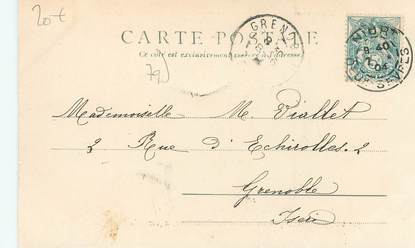 20 €
CARTE POSTALE
Ce côté est exclusivement réservé à l'adresse
GRENOBLE
NIORT
8 40
04
DEUX-SÈVRES
79
Mademoiselle M. Viallet
2 Rue d'Echirolles. 2
Grenoble
Isère